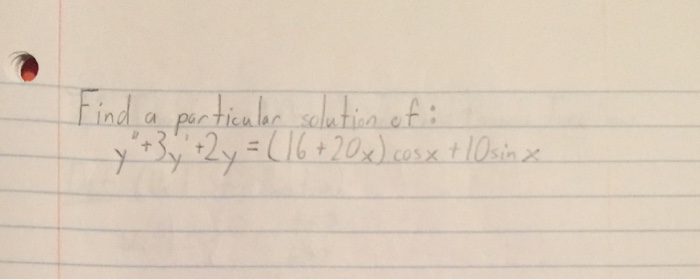 Find a particular solution of:
y"+3y'+2y=(16+20x)cosx+10sinx